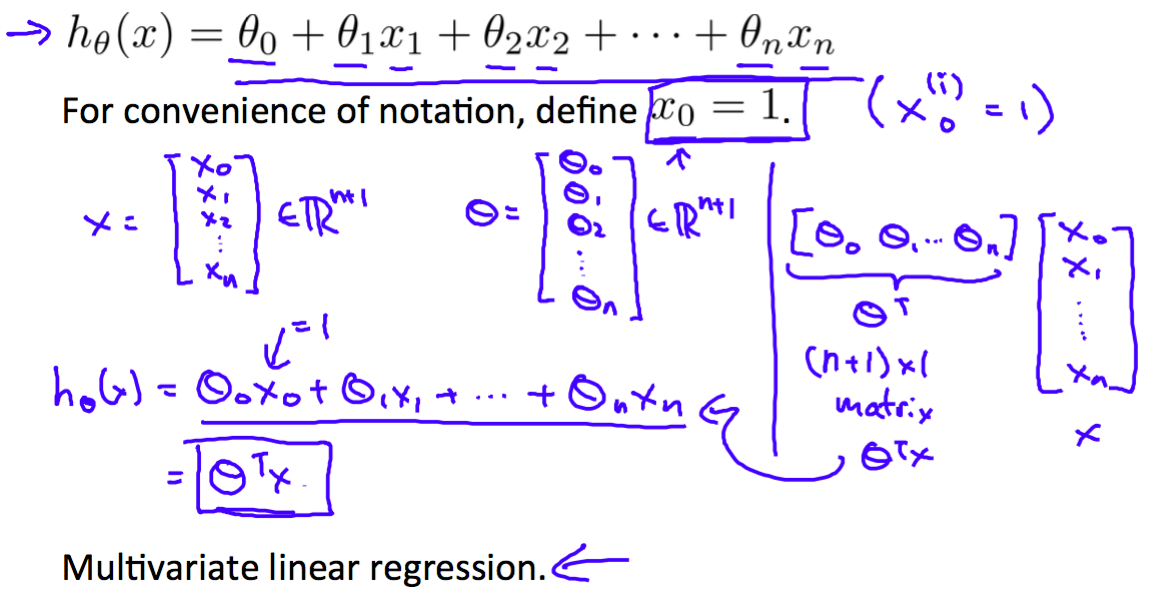 → hθ(x) = θ₀ + θ₁x₁ + θ₂x₂ + ⋯ + θₙxₙ
For convenience of notation, define x₀ = 1. (x₀⁽ⁱ⁾ = 1)
x = [x₀ x₁ x₂ ⋮ xₙ] ∈ ℝⁿ⁺¹ θ = [θ₀ θ₁ θ₂ ⋮ θₙ] ∈ ℝⁿ⁺¹
[θ₀ θ₁ ⋯ θₙ] [x₀ x₁ ⋮ xₙ]
θᵀ
(n+1)×1
matrix
x
θᵀx
= 1
hθ(x) = θ₀x₀ + θ₁x₁ + ⋯ + θₙxₙ
= θᵀx
Multivariate linear regression. ←